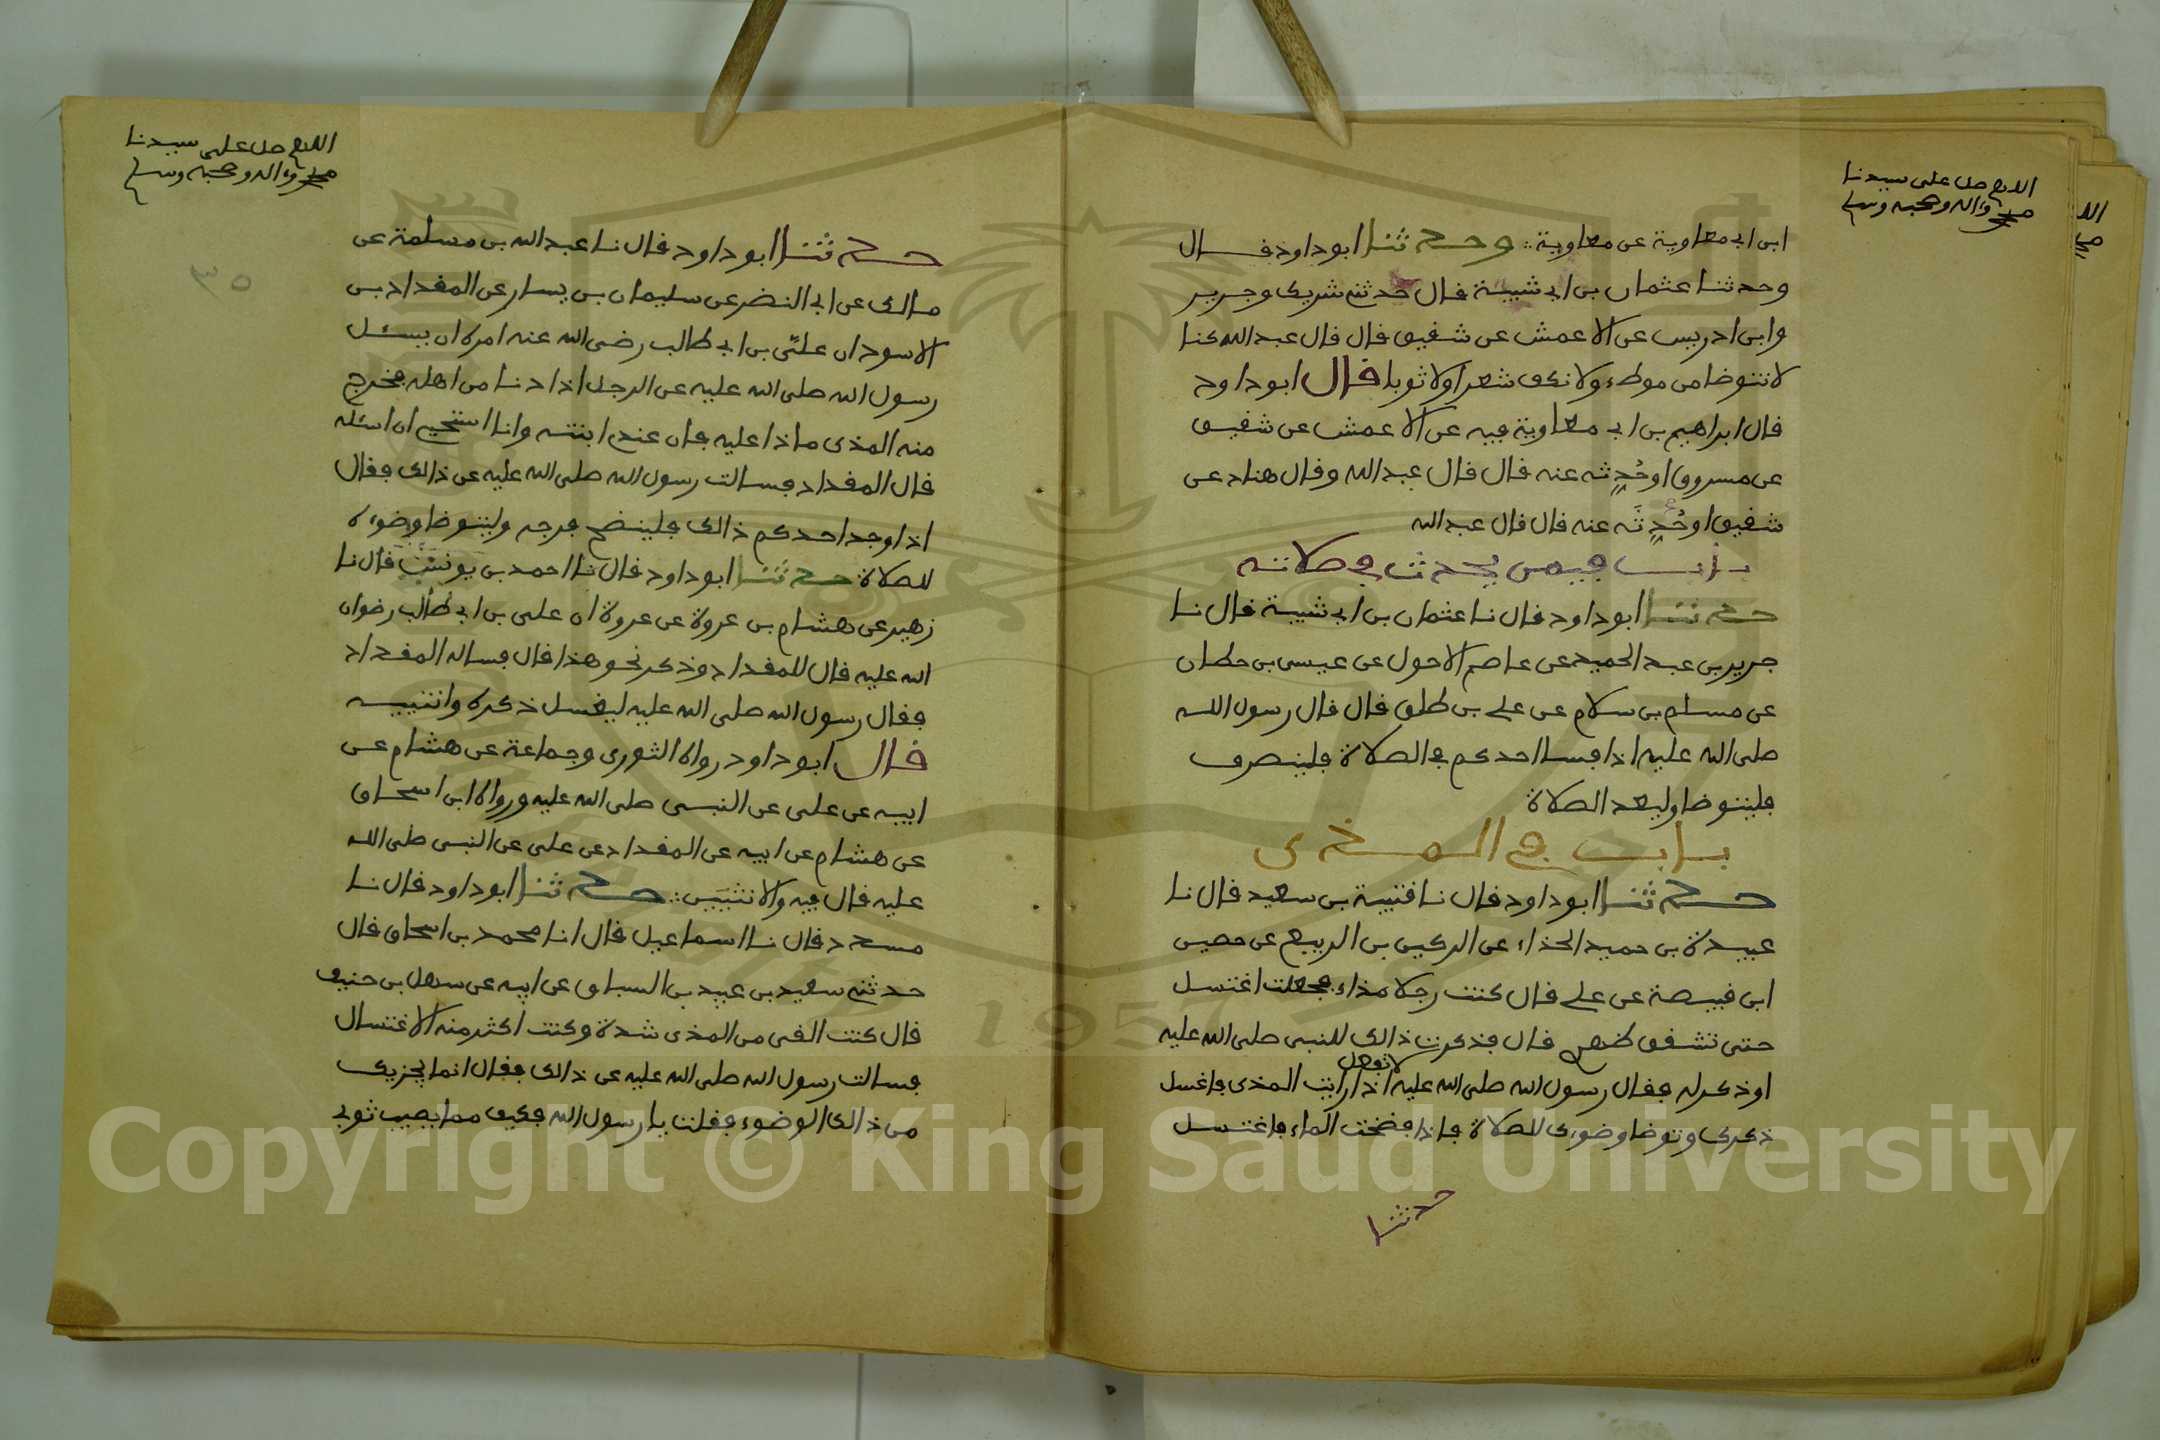 اللهم صل على سيدنا
محمد وءاله وصحبه وسلم
ابن ابي معاوية عن معاوية وحدثنا ابو داود قال
وحدثنا عثمان بن ابي شيبة قال حدثني شريك وجرير
وابن ادريس عن الاعمش عن شفيق قال قال عبد الله كنا
لا نتوضا من موطء ولا نكف شعرا ولا ثوبا قال ابو داود
قال ابراهيم بن ابي معاوية فيه عن الاعمش عن شفيق
عن مسروق او حدثه عنه قال قال عبد الله وقال هناد عن
شفيق او حدثه عنه قال قال عبد الله
باب فيمن يحدث في صلاته
حدثنا ابو داود قال نا عثمان بن ابي شيبة قال نا
جرير بن عبد الحميد عن عاصم الاحول عن عيسى بن حطان
عن مسلم بن سلام عن علي بن طلق قال قال رسول الله
صلى الله عليه اذا فسا احدكم في الصلاة فلينصرف
فليتوضا وليعد الصلاة
باب في المذي
حدثنا ابو داود قال نا قتيبة بن سعيد قال نا
عبيدة بن حميد الحذاء عن الركين بن الربيع عن حصين
ابن قبيصة عن علي قال كنت رجلا مذاء فجعلت اغتسل
حتى تشقق ظهري قال فذكرت ذالك للنبي صلى الله عليه
او ذكر له فقال رسول الله صلى الله عليه لا تفعل اذا رايت المذي فاغسل
ذكرك وتوضا وضوءك للصلاة فاذا فضخت الماء فاغتسل
حدثنا
اللهم صل على سيدنا
محمد وءاله وصحبه وسلم
٣٥
حدثنا ابو داود قال نا عبد الله بن مسلمة عن
مالك عن ابي النضر عن سليمان بن يسار عن المقداد بن
الاسود ان علي بن ابي طالب رضى الله عنه امره ان يسئل
رسول الله صلى الله عليه عن الرجل اذا دنا من اهله فخرج
منه المذي ماذا عليه فان عندي ابنته وانا استحيي ان اسئله
قال المقداد فسالت رسول الله صلى الله عليه عن ذالك فقال
اذا وجد احدكم ذالك فلينضح فرجه وليتوضا وضوءه
للصلاة حدثنا ابو داود قال نا احمد بن يونس قال نا
زهير عن هشام بن عروة عن عروة ان علي بن ابي طالب رضوان
الله عليه قال للمقداد وذكر نحو هذا قال فساله المقداد
فقال رسول الله صلى الله عليه ليغسل ذكره وانثييه
قال ابو داود رواه الثوري وجماعة عن هشام عن
ابيه عن علي عن النبي صلى الله عليه ورواه ابن اسحاق
عن هشام عن ابيه عن المقداد عن علي عن النبي صلى الله
عليه قال فيه والانثيين حدثنا ابو داود قال نا
مسدد قال نا اسماعيل قال انا محمد بن اسحاق قال
حدثني سعيد بن عبيد بن السباق عن ابيه عن سهل بن حنيف
قال كنت القى من المذي شدة وكنت اكثر منه الاغتسال
فسالت رسول الله صلى الله عليه عن ذالك فقال انما يجزيك
من ذالك الوضوء فقلت يا رسول الله فكيف مما يصيب ثوبي
Copyright © King Saud University
1957